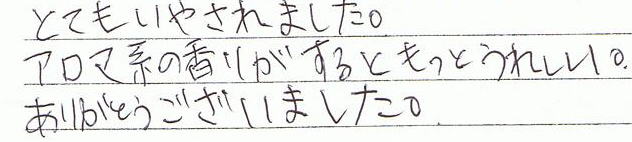 とてもいやされました。
アロマ系の香りがするともっとうれしい。
ありがとうございました。